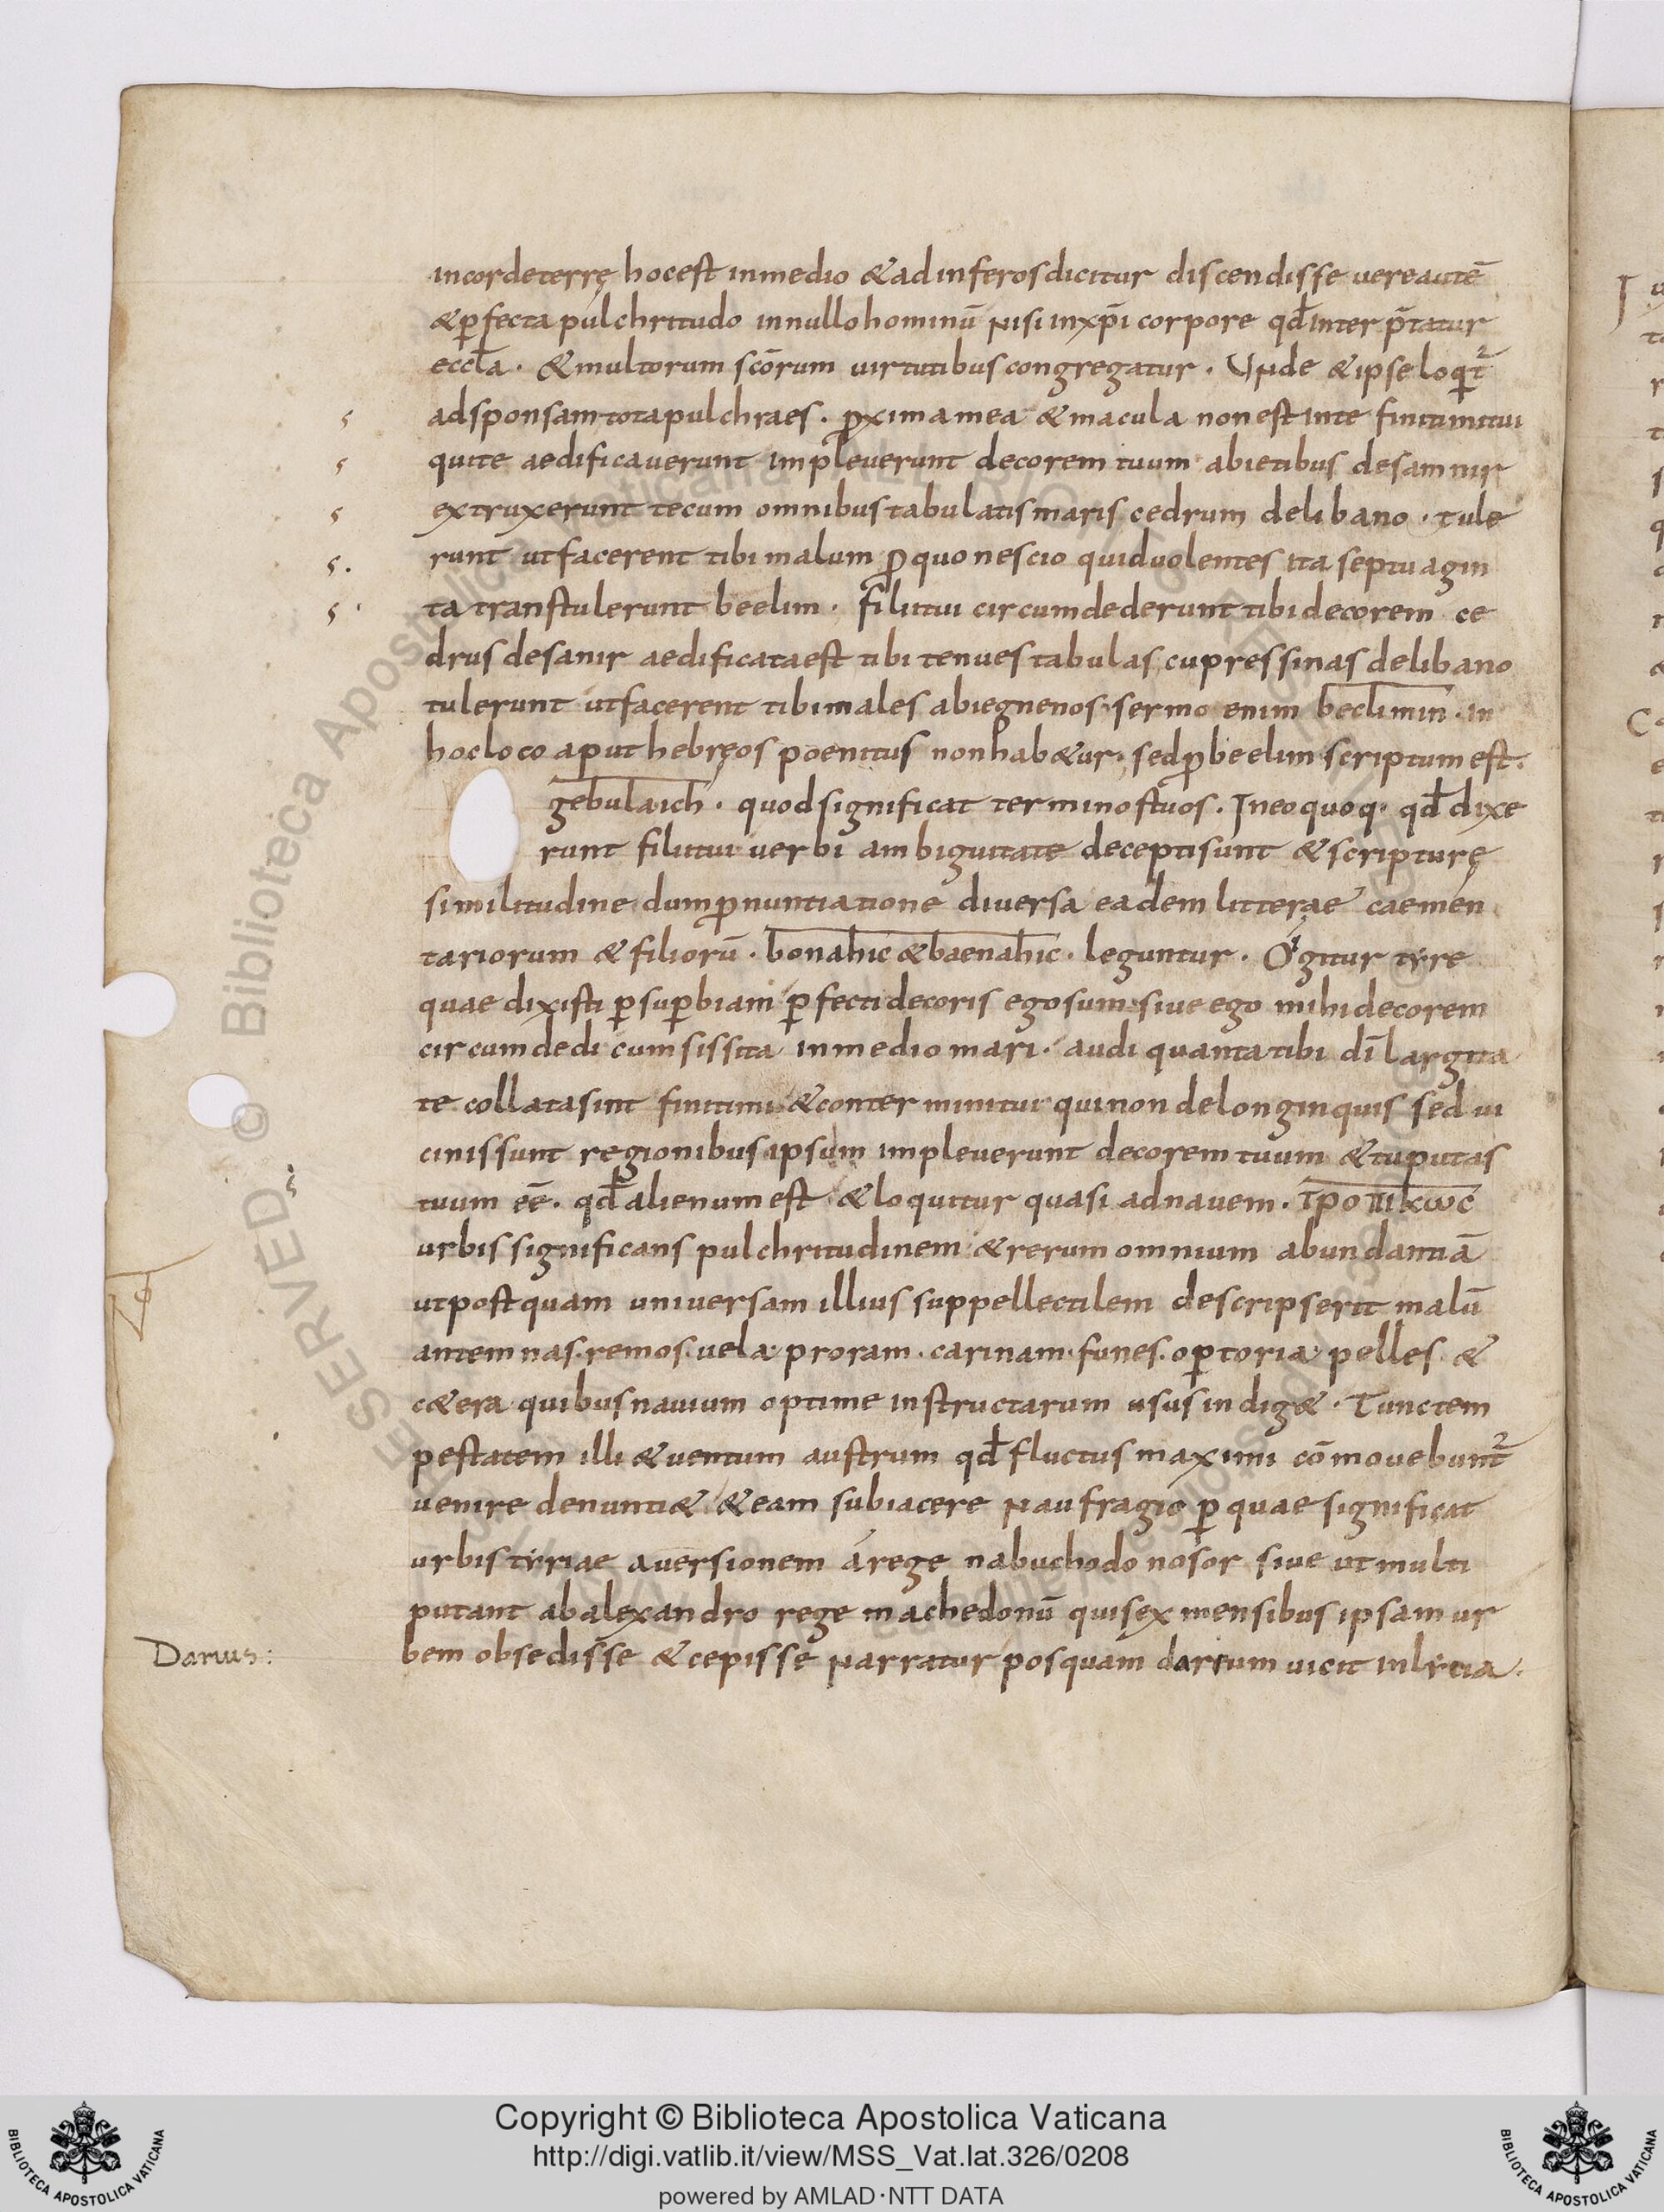 incordeterrę hocest inmedio &adinferosdicitur discendisse uereautē
&ꝑfecta pulchritudo innullohominū nisi inxp̄i corpore qđ inter p̄tatur
eccƚa. &multorum sc̄orum uirtutibus congregatur. Unde &ipse loqͥt᷑
adsponsam totapulchraes. ꝓximamea &macula nonest inte finitimitui
quite aedificauerunt impleuerunt decorem tuum abietibus desamnir
extruxerunt tecum omnibustabulatis maris cedrum delibano. tule
runt utfacerent tibi malum ꝓquo nescio quiduolentes ita septuagin
ta transtulerunt beelim. filiitui circumdederunt tibidecorem ce
drus desanir aedificataest tibi tenues tabulas cupressinas delibano
tulerunt utfacerent tibimales abiegnenos sermo enim beclimin. in
hocloco aput hebręos poenitus nonhab&ur. sedꝓbeelim scriptum est.
gebulaich. quodsignificat terminostuos. Ineoquoq. qđ dixe
runt filiitui uerbi ambiguitate deceptisunt &scripturę
similitudine dumꝓnuntiatione diuersa eadem litterae caemen
tariorum &filiorū. bonahic &baenahic. leguntur. Ógitur tyre
quae dixisti ꝑsuꝑbiam ꝑfecti decoris egosum siue ego mihi decorem
circumdedi cumsissita inmedio mari. audi quantatibi dī largita
te collatasint finitimi &conterminitui quinon delonginquis sed ui
cinissunt regionibus ipsum impleuerunt decorem tuum &tuputas
tuum eē. qđ alienum est &loquitur quasi adnauem. τροπικωc
urbis significans pulchritudinem &rerum omnium abundantiā
utpostquam uniuersam illius suppellectilem descripserit malū
antemnas. remos. uela proram. carinam. funes. oꝑtoria pelles &
c&era quibus nauium optime instructarum usus indig&. Tunctem
pestatem illi &uentum austrum qđ fluctus maximi cōmouebunt᷑
uenire denunti& &eam subiacere naufragio ꝑ quae significat
urbis tyriae auersionem árege nabuchodonosor siue utmulti
putant abalexandro rege machedonū quisex mensibus ipsam ur
bem obsedisse &cepisse narratur posquam darium uicit inlycia.
Darius:
Copyright © Biblioteca Apostolica Vaticana
http://digi.vatlib.it/view/MSS_Vat.lat.326/0208
powered by AMLAD·NTT DATA
BIBLIOTECA APOSTOLICA VATICANA
BIBLIOTECA APOSTOLICA VATICANA